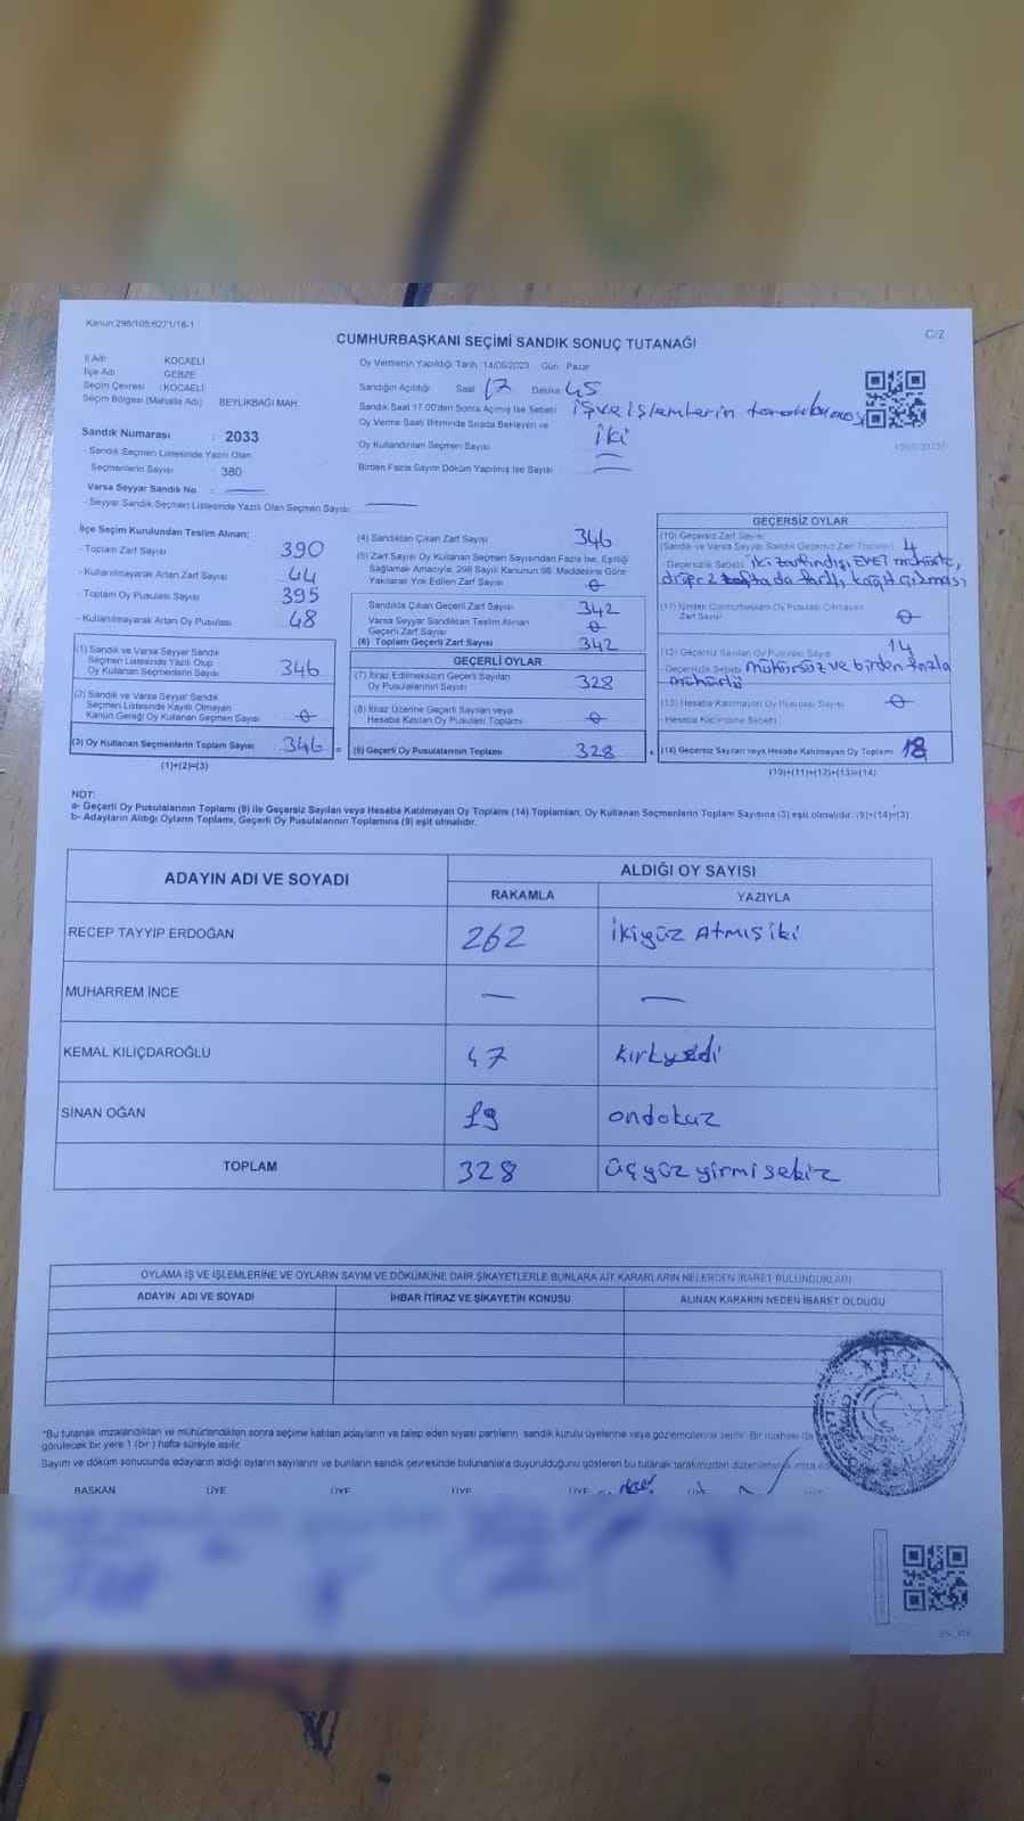 Kanun:298/105;6271/16-1
C/2
CUMHURBAŞKANI SEÇİMİ SANDIK SONUÇ TUTANAĞI
İl Adı : KOCAELİ
İlçe Adı : GEBZE
Seçim Çevresi : KOCAELİ
Seçim Bölgesi (Mahalle Adı) BEYLİKBAĞI MAH.
Sandık Numarası : 2033
- Sandık Seçmen Listesinde Yazılı Olan
Seçmenlerin Sayısı : 380
Varsa Seyyar Sandık No :
- Seyyar Sandık Seçmen Listesinde Yazılı Olan Seçmen Sayısı:
Oy Vermenin Yapıldığı Tarih :14/05/2023 Gün: Pazar
Sandığın Açıldığı Saat 17 Dakika 45
Sandık Saat 17.00'den Sonra Açılmış İse Sebebi : işve işlemlerin
Oy Verme Saati Bitiminde Sırada Bekleyen ve
Oy Kullandırılan Seçmen Sayısı iki
Birden Fazla Sayım Döküm Yapılmış İse Sayısı
İlçe Seçim Kurulundan Teslim Alınan:
- Toplam Zarf Sayısı 390
- Kullanılmayarak Artan Zarf Sayısı 44
- Toplam Oy Pusulası Sayısı 395
- Kullanılmayarak Artan Oy Pusulası 48
(1) Sandık ve Varsa Seyyar Sandık
Seçmen Listesinde Yazılı Olup
Oy Kullanan Seçmenlerin Sayısı 346
(2) Sandık ve Varsa Seyyar Sandık
Seçmen Listesinde Kayıtlı Olmayan
Kanun Gereği Oy Kullanan Seçmen Sayısı 0
(3) Oy Kullanan Seçmenlerin Toplam Sayısı 346 =
(1)+(2)=(3)
(4) Sandıktan Çıkan Zarf Sayısı 346
(5) Zarf Sayısı Oy Kullanan Seçmen Sayısından Fazla İse, Eşitliği
Sağlamak Amacıyla, 298 Sayılı Kanunun 98. Maddesine Göre
Yakılarak Yok Edilen Zarf Sayısı 0
Sandıkta Çıkan Geçerli Zarf Sayısı 342
Varsa Seyyar Sandıktan Teslim Alınan
Geçerli Zarf Sayısı 0
(6) Toplam Geçerli Zarf Sayısı 342
GEÇERLİ OYLAR
(7) İtiraz Edilmeksizin Geçerli Sayılan
Oy Pusulalarının Sayısı 328
(8) İtiraz Üzerine Geçerli Sayılan veya
Hesaba Katılan Oy Pusulası Toplamı 0
(9) Geçerli Oy Pusulalarının Toplamı 328 +
GEÇERSİZ OYLAR
(10) Geçersiz Zarf Sayısı
(Sandık ve Varsa Seyyar Sandık Geçersiz Zarf Toplamı) 4
Geçersizlik Sebebi iki zarfındışı EVET mühürlü,
diğer 2 zarfta da farklı kağıt çıkması
Zarf Sayısı 0
(12) Geçersiz Sayılan Oy Pusulası Sayısı 14
Geçersizlik Sebebi mühürsüz ve birden fazla
mühürlü
(13) Hesaba Katılmayan Oy Pusulası Sayısı 0
Hesaba Katılmama Sebebi
(14) Geçersiz Sayılan veya Hesaba Katılmayan Oy Toplamı 18
(10)+(11)+(12)+(13)=(14)
NOT:
a- Geçerli Oy Pusulalarının Toplamı (9) ile Geçersiz Sayılan veya Hesaba Katılmayan Oy Toplamı (14) Toplamları, Oy Kullanan Seçmenlerin Toplam Sayısına (3) eşit olmalıdır. (9)+(14)=(3)
b- Adayların Aldığı Oyların Toplamı, Geçerli Oy Pusulalarının Toplamına (9) eşit olmalıdır.
ADAYIN ADI VE SOYADI
ALDIĞI OY SAYISI
RAKAMLA YAZIYLA
RECEP TAYYİP ERDOĞAN 262 ikiyüz Atmış iki
MUHARREM İNCE — —
KEMAL KILIÇDAROĞLU 47 kırkyedi
SİNAN OĞAN 19 ondokuz
TOPLAM 328 üçyüz yirmi sekiz
OYLAMA İŞ VE İŞLEMLERİNE VE OYLARIN SAYIM VE DÖKÜMÜNE DAİR ŞİKAYETLERLE BUNLARA AİT KARARLARIN NELERDEN İBARET BULUNDUKLARI
ADAYIN ADI VE SOYADI İHBAR İTİRAZ VE ŞİKAYETİN KONUSU ALINAN KARARIN NEDEN İBARET OLDUĞU
*Bu tutanak imzalandıktan ve mühürlendikten sonra seçime katılan adayların ve talep eden siyasi partilerin sandık kurulu üyelerine veya gözlemcilerine verilir. Bir nüshası da
görülecek bir yere 1 (bir) hafta süreyle asılır.
Sayım ve döküm sonucunda adayların aldığı oyların sayılarını ve bunların sandık çevresinde bulunanlara duyurulduğunu gösteren bu tutanak tarafımızdan düzenlenerek imza
BAŞKAN ÜYE ÜYE ÜYE ÜYE